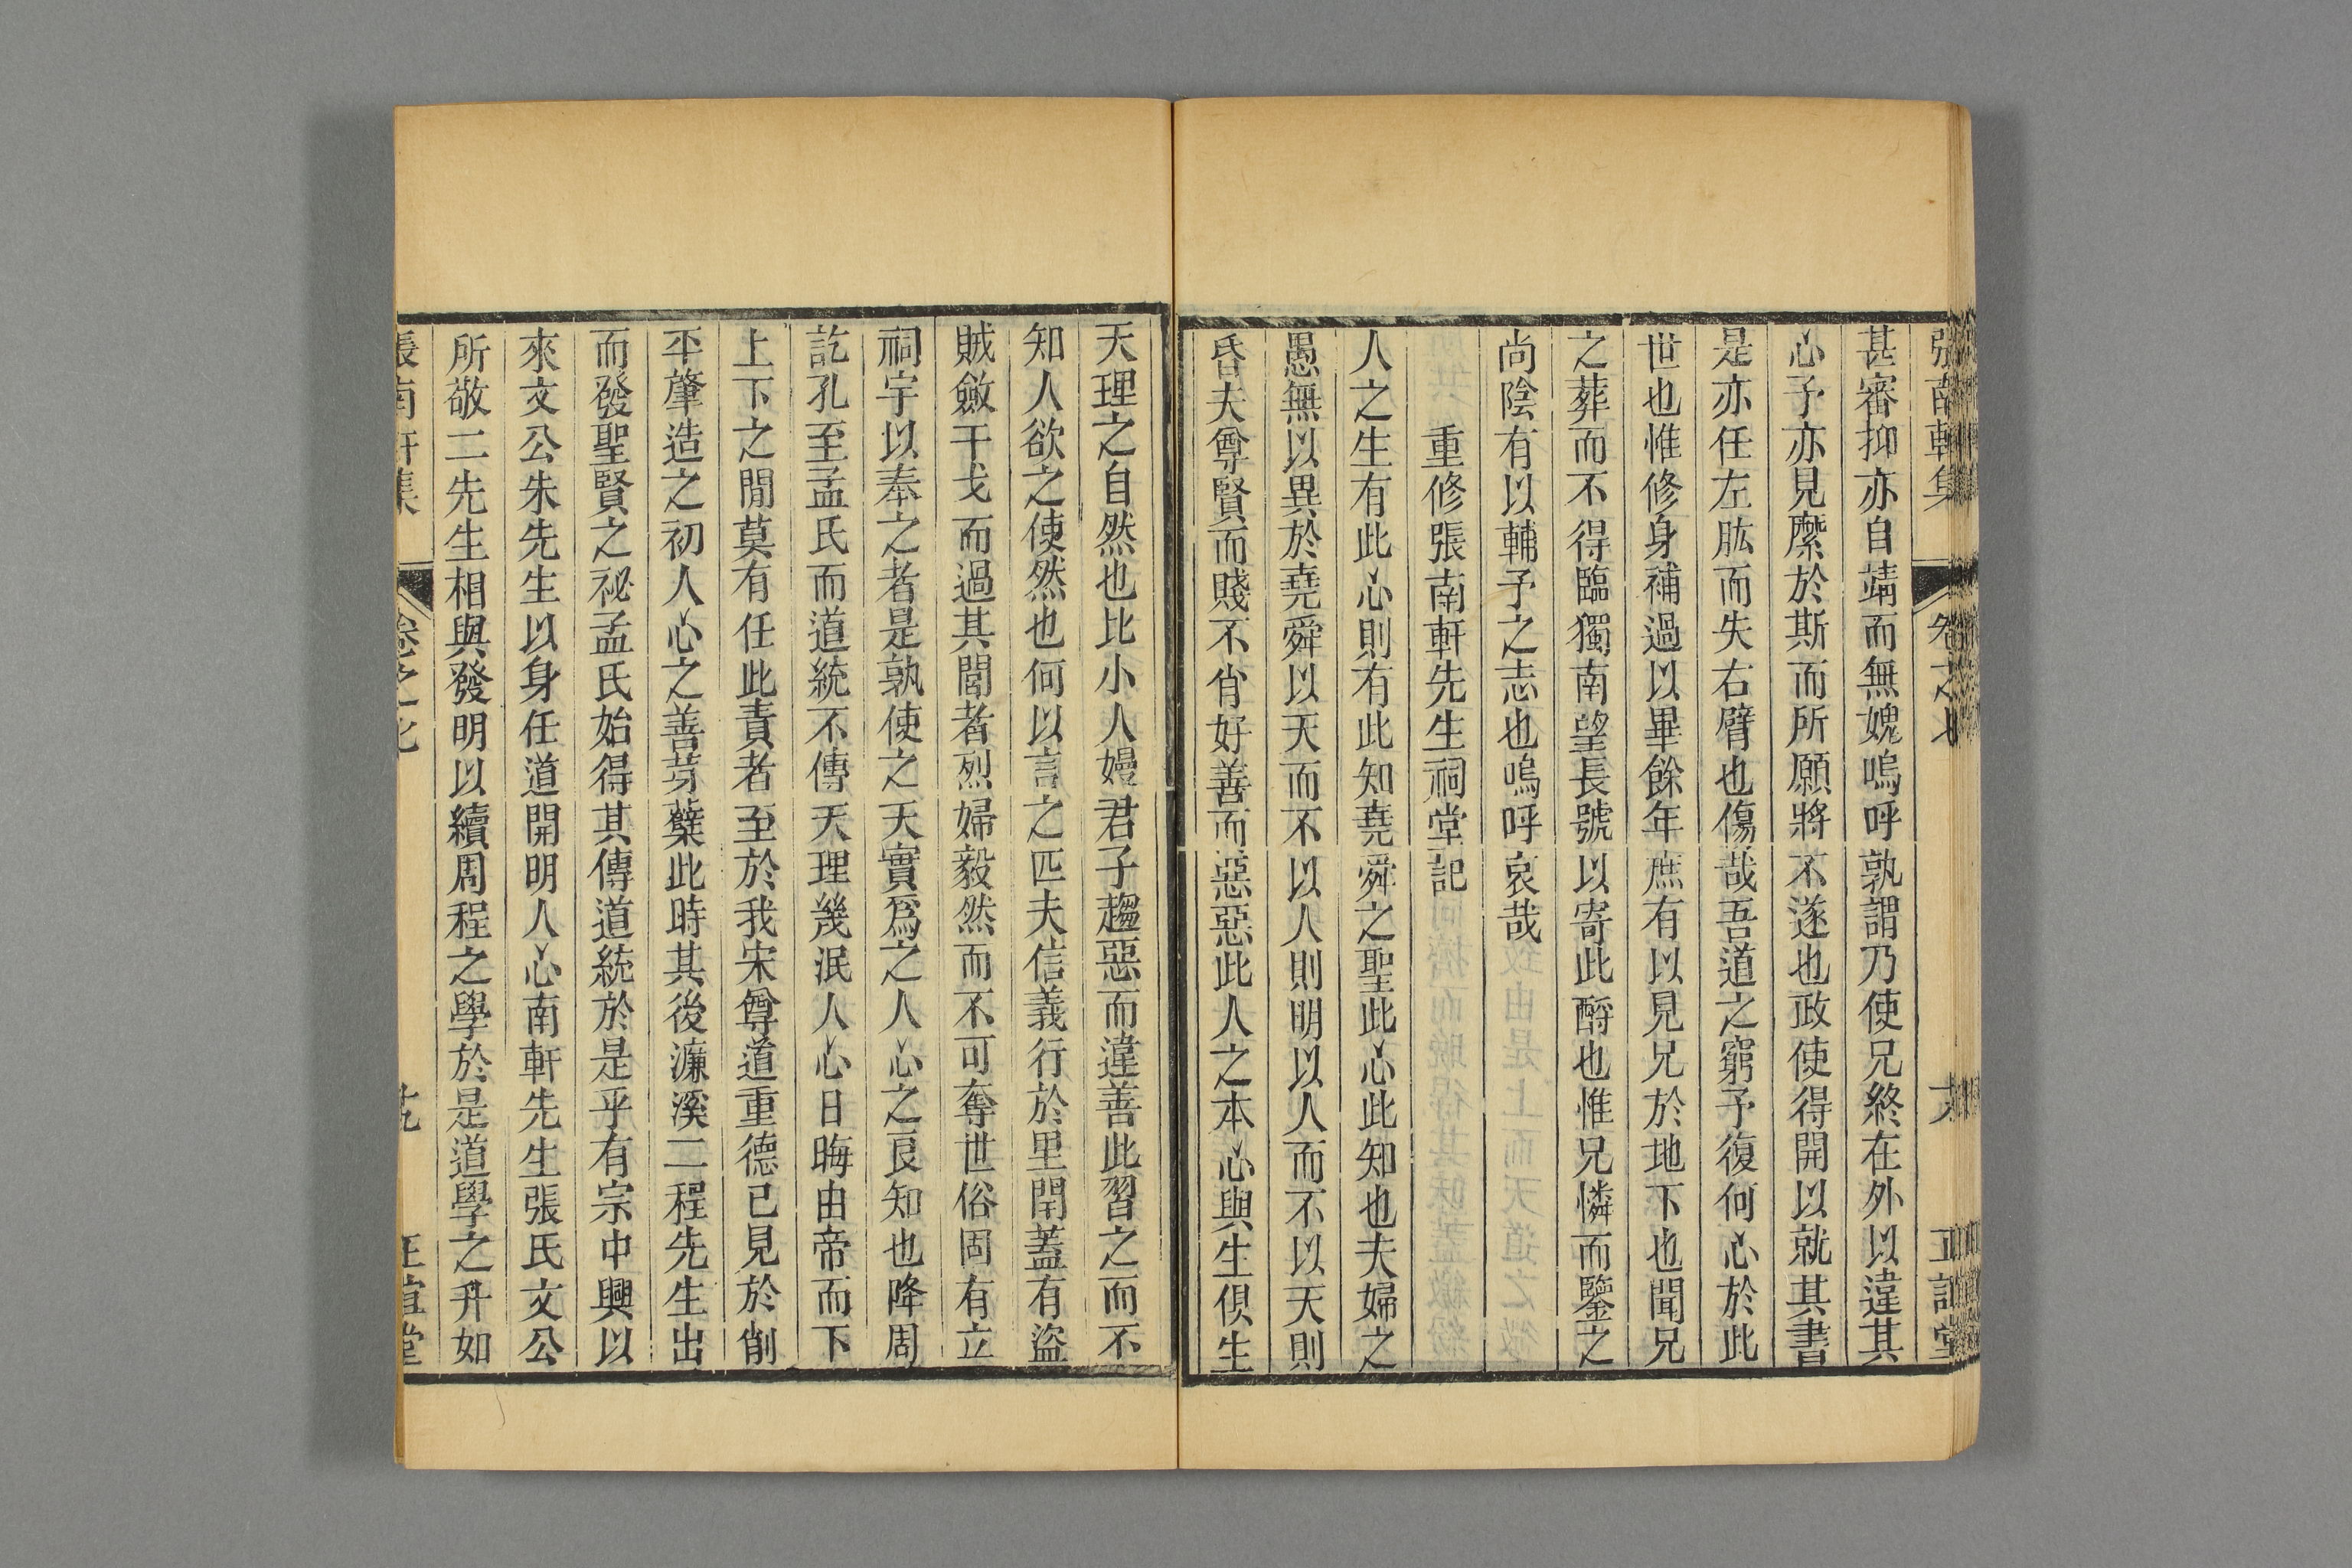 張南軒集 卷之七 大 正誼堂
甚審抑亦自靖而無媿嗚呼孰謂乃使兄終在外以違其
心予亦見縻於斯而所願將不遂也政使得開以就其書
是亦任左肱而失右臂也傷哉吾道之窮予復何心於此
世也惟修身補過以畢餘年庶有以見兄於地下也聞兄
之葬而不得臨獨南望長號以寄此酹也惟兄憐而鑒之
尚陰有以輔予之志也嗚呼哀哉
重修張南軒先生祠堂記
人之生有此心則有此知堯舜之聖此心此知也夫婦之
愚無以異於堯舜以天而不以人則明以人而不以天則
昏夫尊賢而賤不肖好善而惡惡此人之本心與生俱生
天理之自然也比小人嫚君子趨惡而違善此習之而不
知人欲之使然也何以言之匹夫信義行於里閈蓋有盜
賊斂干戈而過其閭者烈婦毅然而不可奪世俗固有立
祠宇以奉之者是孰使之天實爲之人心之良知也降周
訖孔至孟氏而道統不傳天理幾泯人心日晦由帝而下
上下之閒莫有任此責者至於我宋尊道重德已見於削
平肇造之初人心之善芽蘖此時其後濂溪二程先生出
而發聖賢之祕孟氏始得其傳道統於是乎有宗中興以
來文公朱先生以身任道開明人心南軒先生張氏文公
所敬二先生相與發明以續周程之學於是道學之升如
張南軒集 卷之七 十九 正誼堂